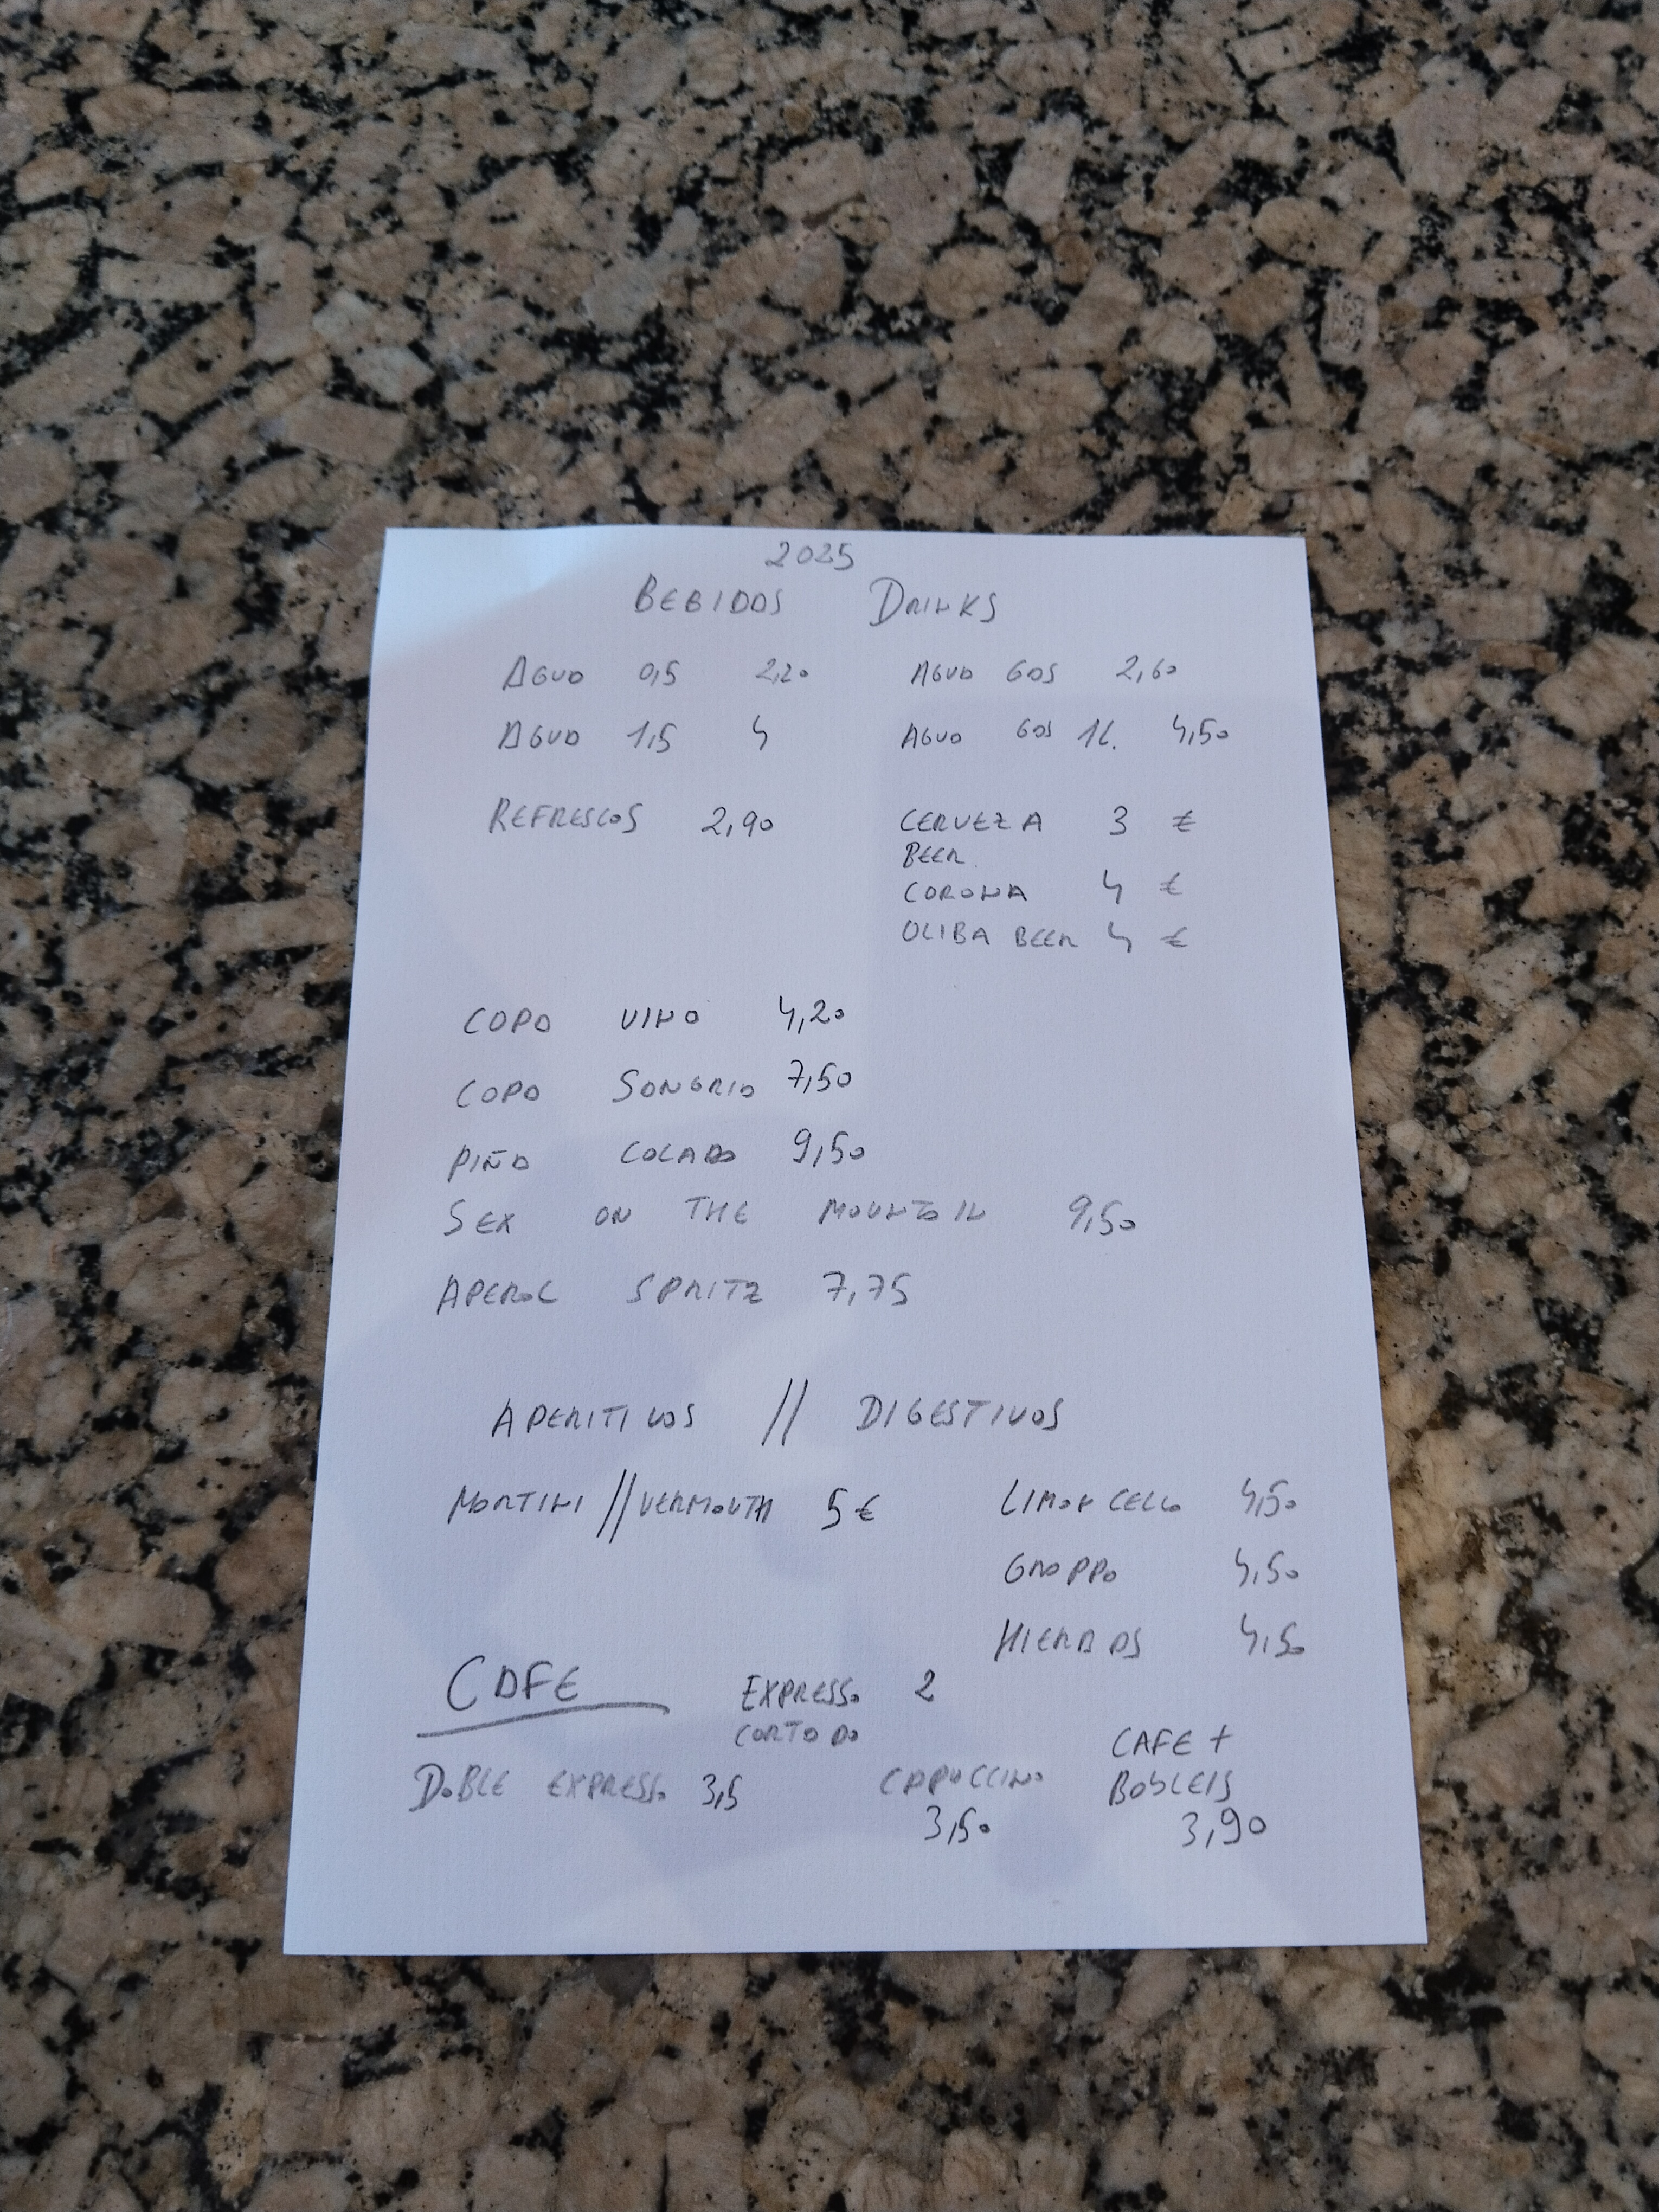 2025
BEBIDAS DRINKS
AGUA 0,5 2,20 AGUA GAS 2,60
AGUA 1,5 4 AGUA GAS 1L. 4,50
REFRESCOS 2,90 CERVEZA 3 €
BEER.
CORONA 4 €
OLIBA BEER 4 €
COPA VINO 4,20
COPA SANGRIA 7,50
PIÑA COLADA 9,50
SEX ON THE MOUNTAIN 9,50
APEROL SPRITZ 7,75
APERITIVOS // DIGESTIVOS
MARTINI // VERMOUTH 5 € LIMONCELLO 4,50
GRAPPA 4,50
HIERBAS 4,50
CAFE EXPRESSO 2
CORTADO
DOBLE EXPRESSO 3,5 CAPUCCINO 3,50
CAFE +
BAILEIS
3,90